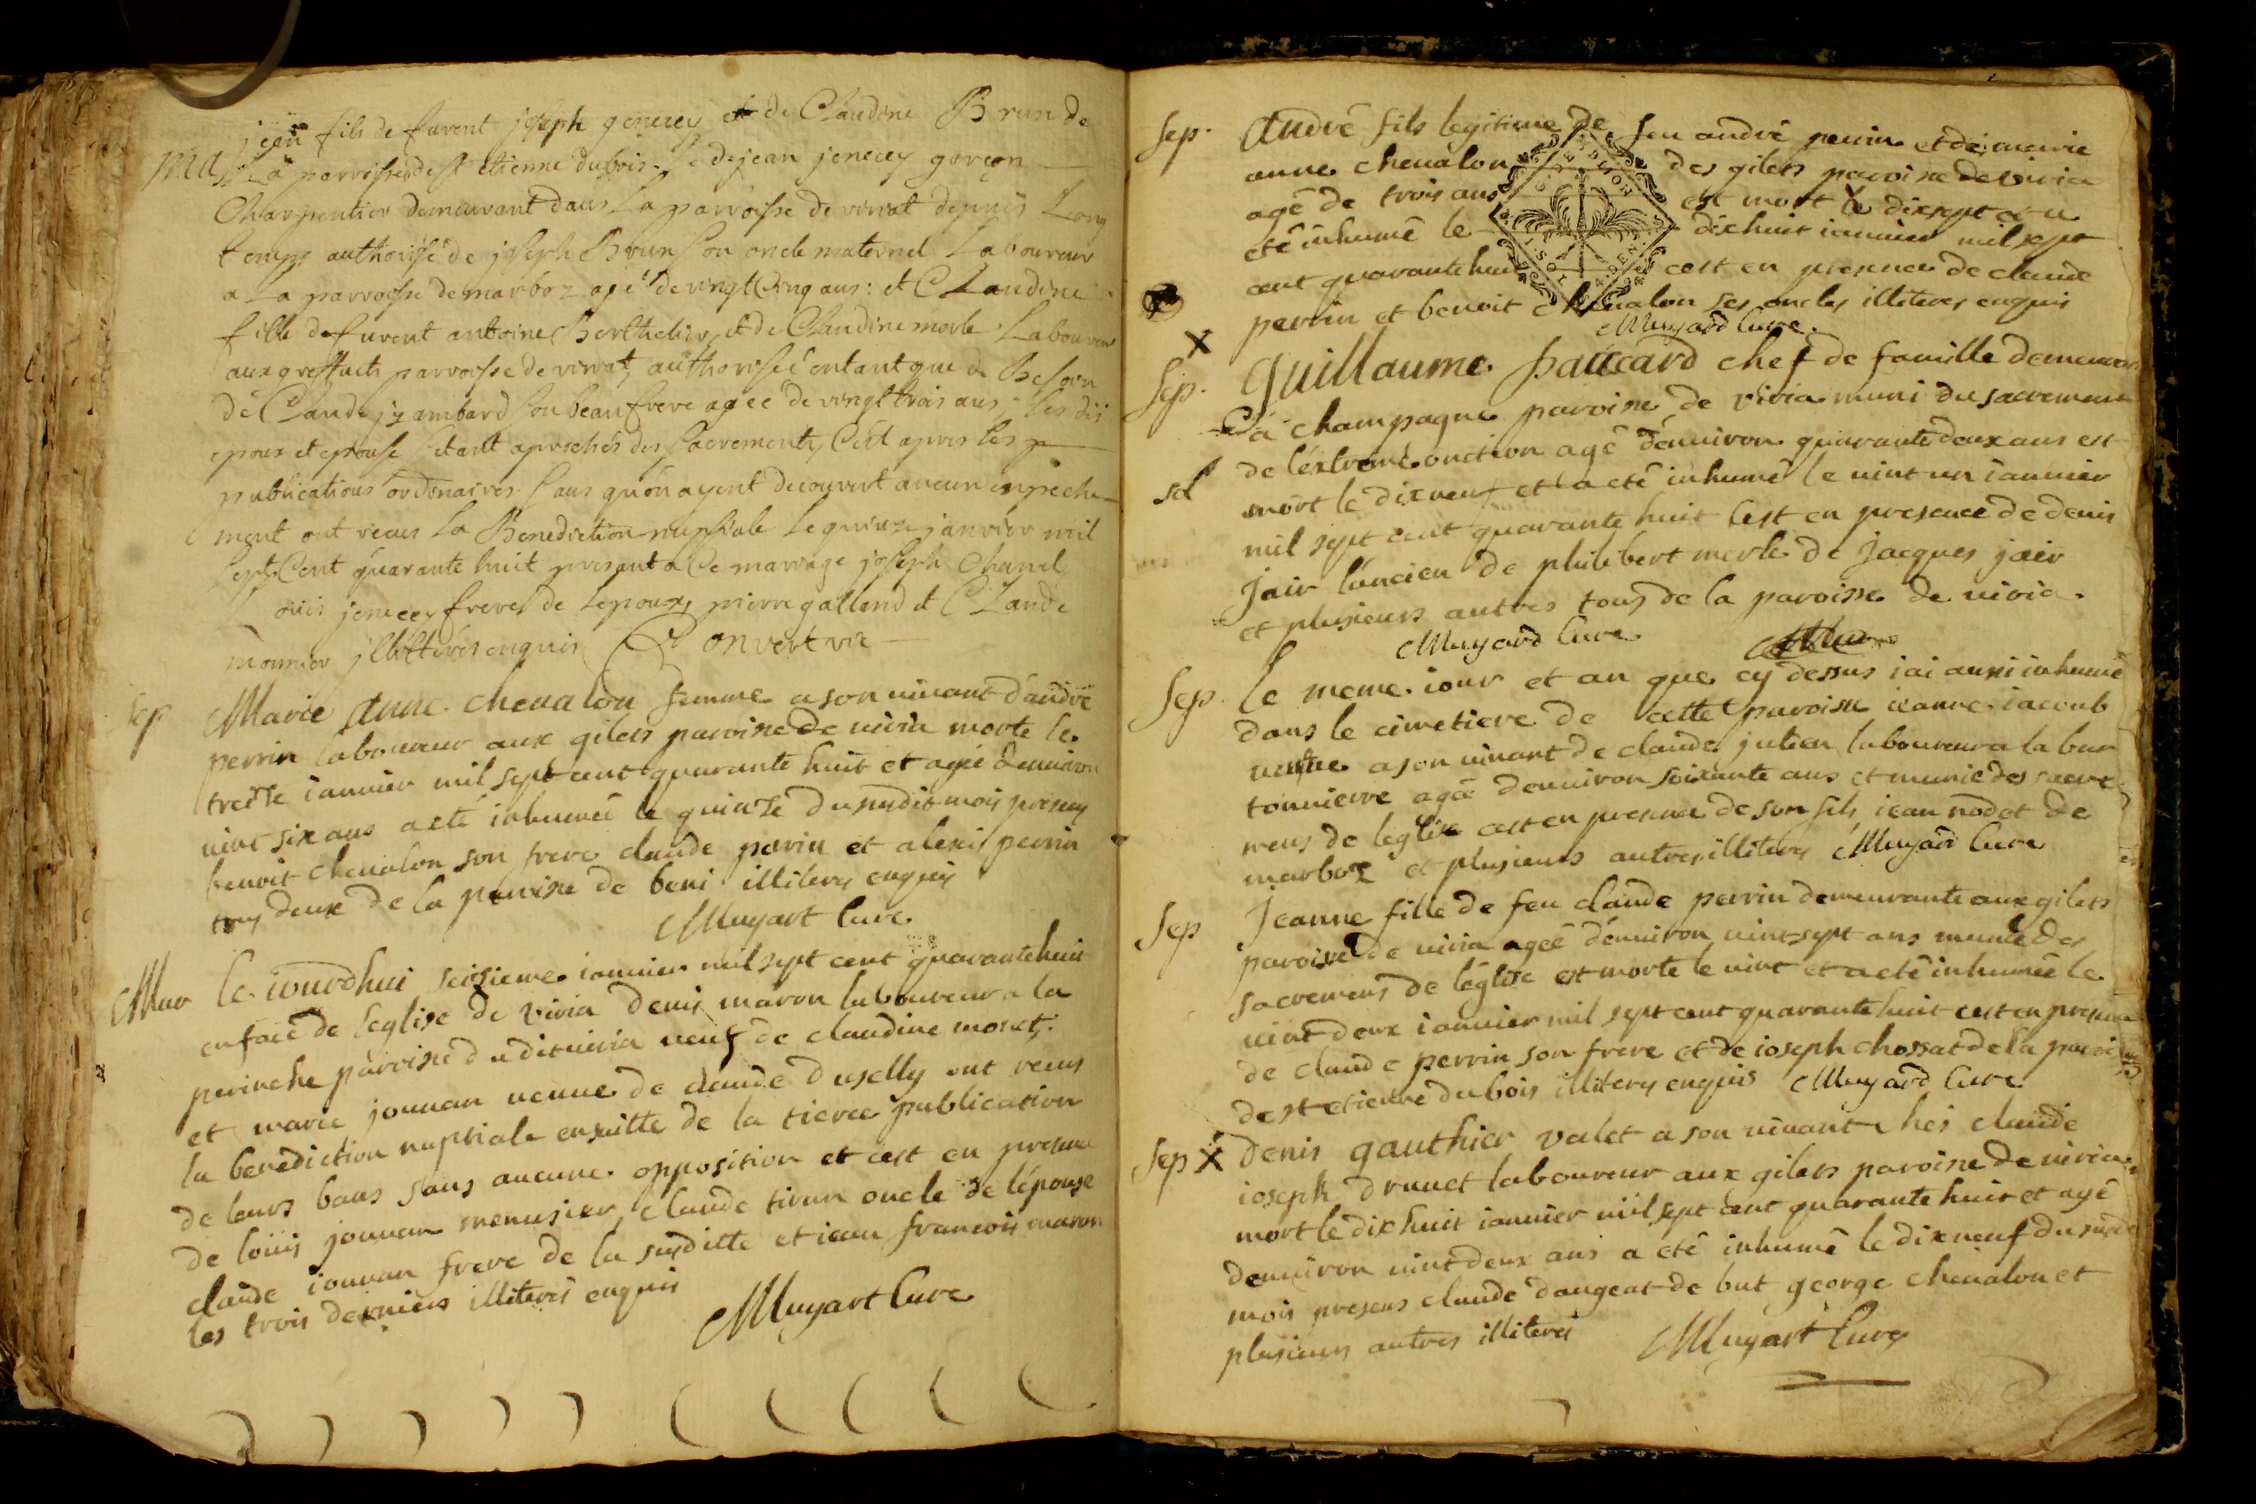 jean fils de furent joseph jenecey et de Claudine Brun de
Ma la parroisse de st etienne du bois. Le de jean jenecey garçon
Charpentier demeurant dans la parroisse de viriat depuis Long
temps authorisé de joseph Brun son oncle maternel Laboureur
a La parroisse de marboz agé de vingt Cinq ans: et CLaudine
fille de furent antoine Berthelier et de Claudine merle Laboureur
aux greffiets parroisse de viriat, authorisée entant que de Besoin
de Claude jambard son beaufrere agée de vingt trois ans; les dis
epoux et epouse s'etant aprochés des sacrements, C'est apres les
publications ordinaires sans qu'on ayent decouvert aucun enpeche
ment ont recus la Benediction nuptiale le quinze janvier mil
sept Cent quarante huit presant a Ce mariage joseph Chanel
Louis jenecey freres de lepoux, pierre galland et CLaude
monnier jllitteres enquis Convert vic
sep Marie Anne chevalon femme a son vivant d'andré
perrin laboureur aux gilets paroisse de viria morte le
treise ianvier mil sept cent quarante huit et agée denviron
vint six ans a eté inhumée le quinse du susdit mois presens
benoit chevalon son frere claude perrin et alexis perrin
tous deux de la paroisse de beni illiteres enquis
Muyart Cure
Mar le iourdhui seisieme ianvier mil sept cent quarante huit
en face de leglise de viria denis maron laboureur a la
perinche paroisse dudit viria veuf de claudine monet
et marie jouvan veuve de claude duselly ont recus
la benediction nuptiale ensuitte de la tierce publication
de leurs bans sans aucune opposition et cest en presence
de loüis jouvan menusier, claude tirun oncle de lépouse
claude iouvan frere de la susditte et iean francois maron
les trois derniers illiterés enquis
Muyart Cure
sep. André fils legitime de feu andré perrin et de marie
anne chevalon des gilets paroisse de viria
agé de trois ans est mort le dixsept et a
eté inhumé le dixhuit ianvier mil sept
cent quarante huit cest en presence de claude
perrin et benoit chevalon ses oncles illiteres enquis
Muyard Cure.
X
sep. Guillaume paucard chef de famille demeurant
a champagne paroisse de viria muni du sacrement
de léxtrême onction agé dénviron quarante deux ans est
sol mort le dixneuf et a eté inhumé le vint un ianvier
mil sept cent quarante huit Cest en presence de denis
Jair láncien de philibert merle de jacques jair
et plusieurs autres tous de la paroisse de viria.
Muyard Cure
Sep. le meme iour et an que cy dessus iai aussi inhumé
dans le cimetiere de cette paroisse ieanne iacoub
veuve a son vivant de claude julien laboureur a la bur
tonnierre agée denviron soixante ans et munie des sacre
mens de leglise cest en presence de son fils iean nodet de
marboz et plusieurs autres illiteres Muyard Cure
Sep Jeanne fille de feu claude perrin demeurante aux gilets
paroisse de viria agée dénviron vint sept ans munie des
sacremens de léglise est morte le vint et a eté inhumée le
vint deux ianvier mil sept cent quarante huit cest en presence
de claude perrin son frere et de ioseph chossat de la paroi
de st etienne du bois illiteres enquis Muyard Cure
Sep X Denis gauthier valet a son vivant ches claude
ioseph druuet laboureur aux gilets paroisse de viria
mort le dix huit ianvier mil sept cent quarante huit et agé
denviron vint deux ans a eté inhumé le dix neuf du susdit
mois presens claude daugeat de but george chevalon et
plusieurs autres illiteres Muyart Cure